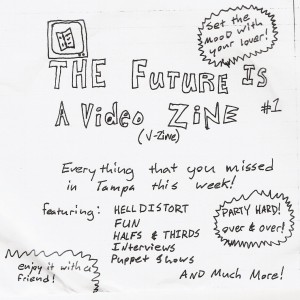 Set the
mood with
your lover!
THE FUTURE IS
A Video ZINE #1
(V-Zine)
Everything that you missed
in Tampa this week!
featuring: HELLDISTORT
FUN
HALFS & THIRDS
Interviews
Puppet Shows
PARTY HARD!
over & over!
enjoy it with a
friend!
AND Much More!